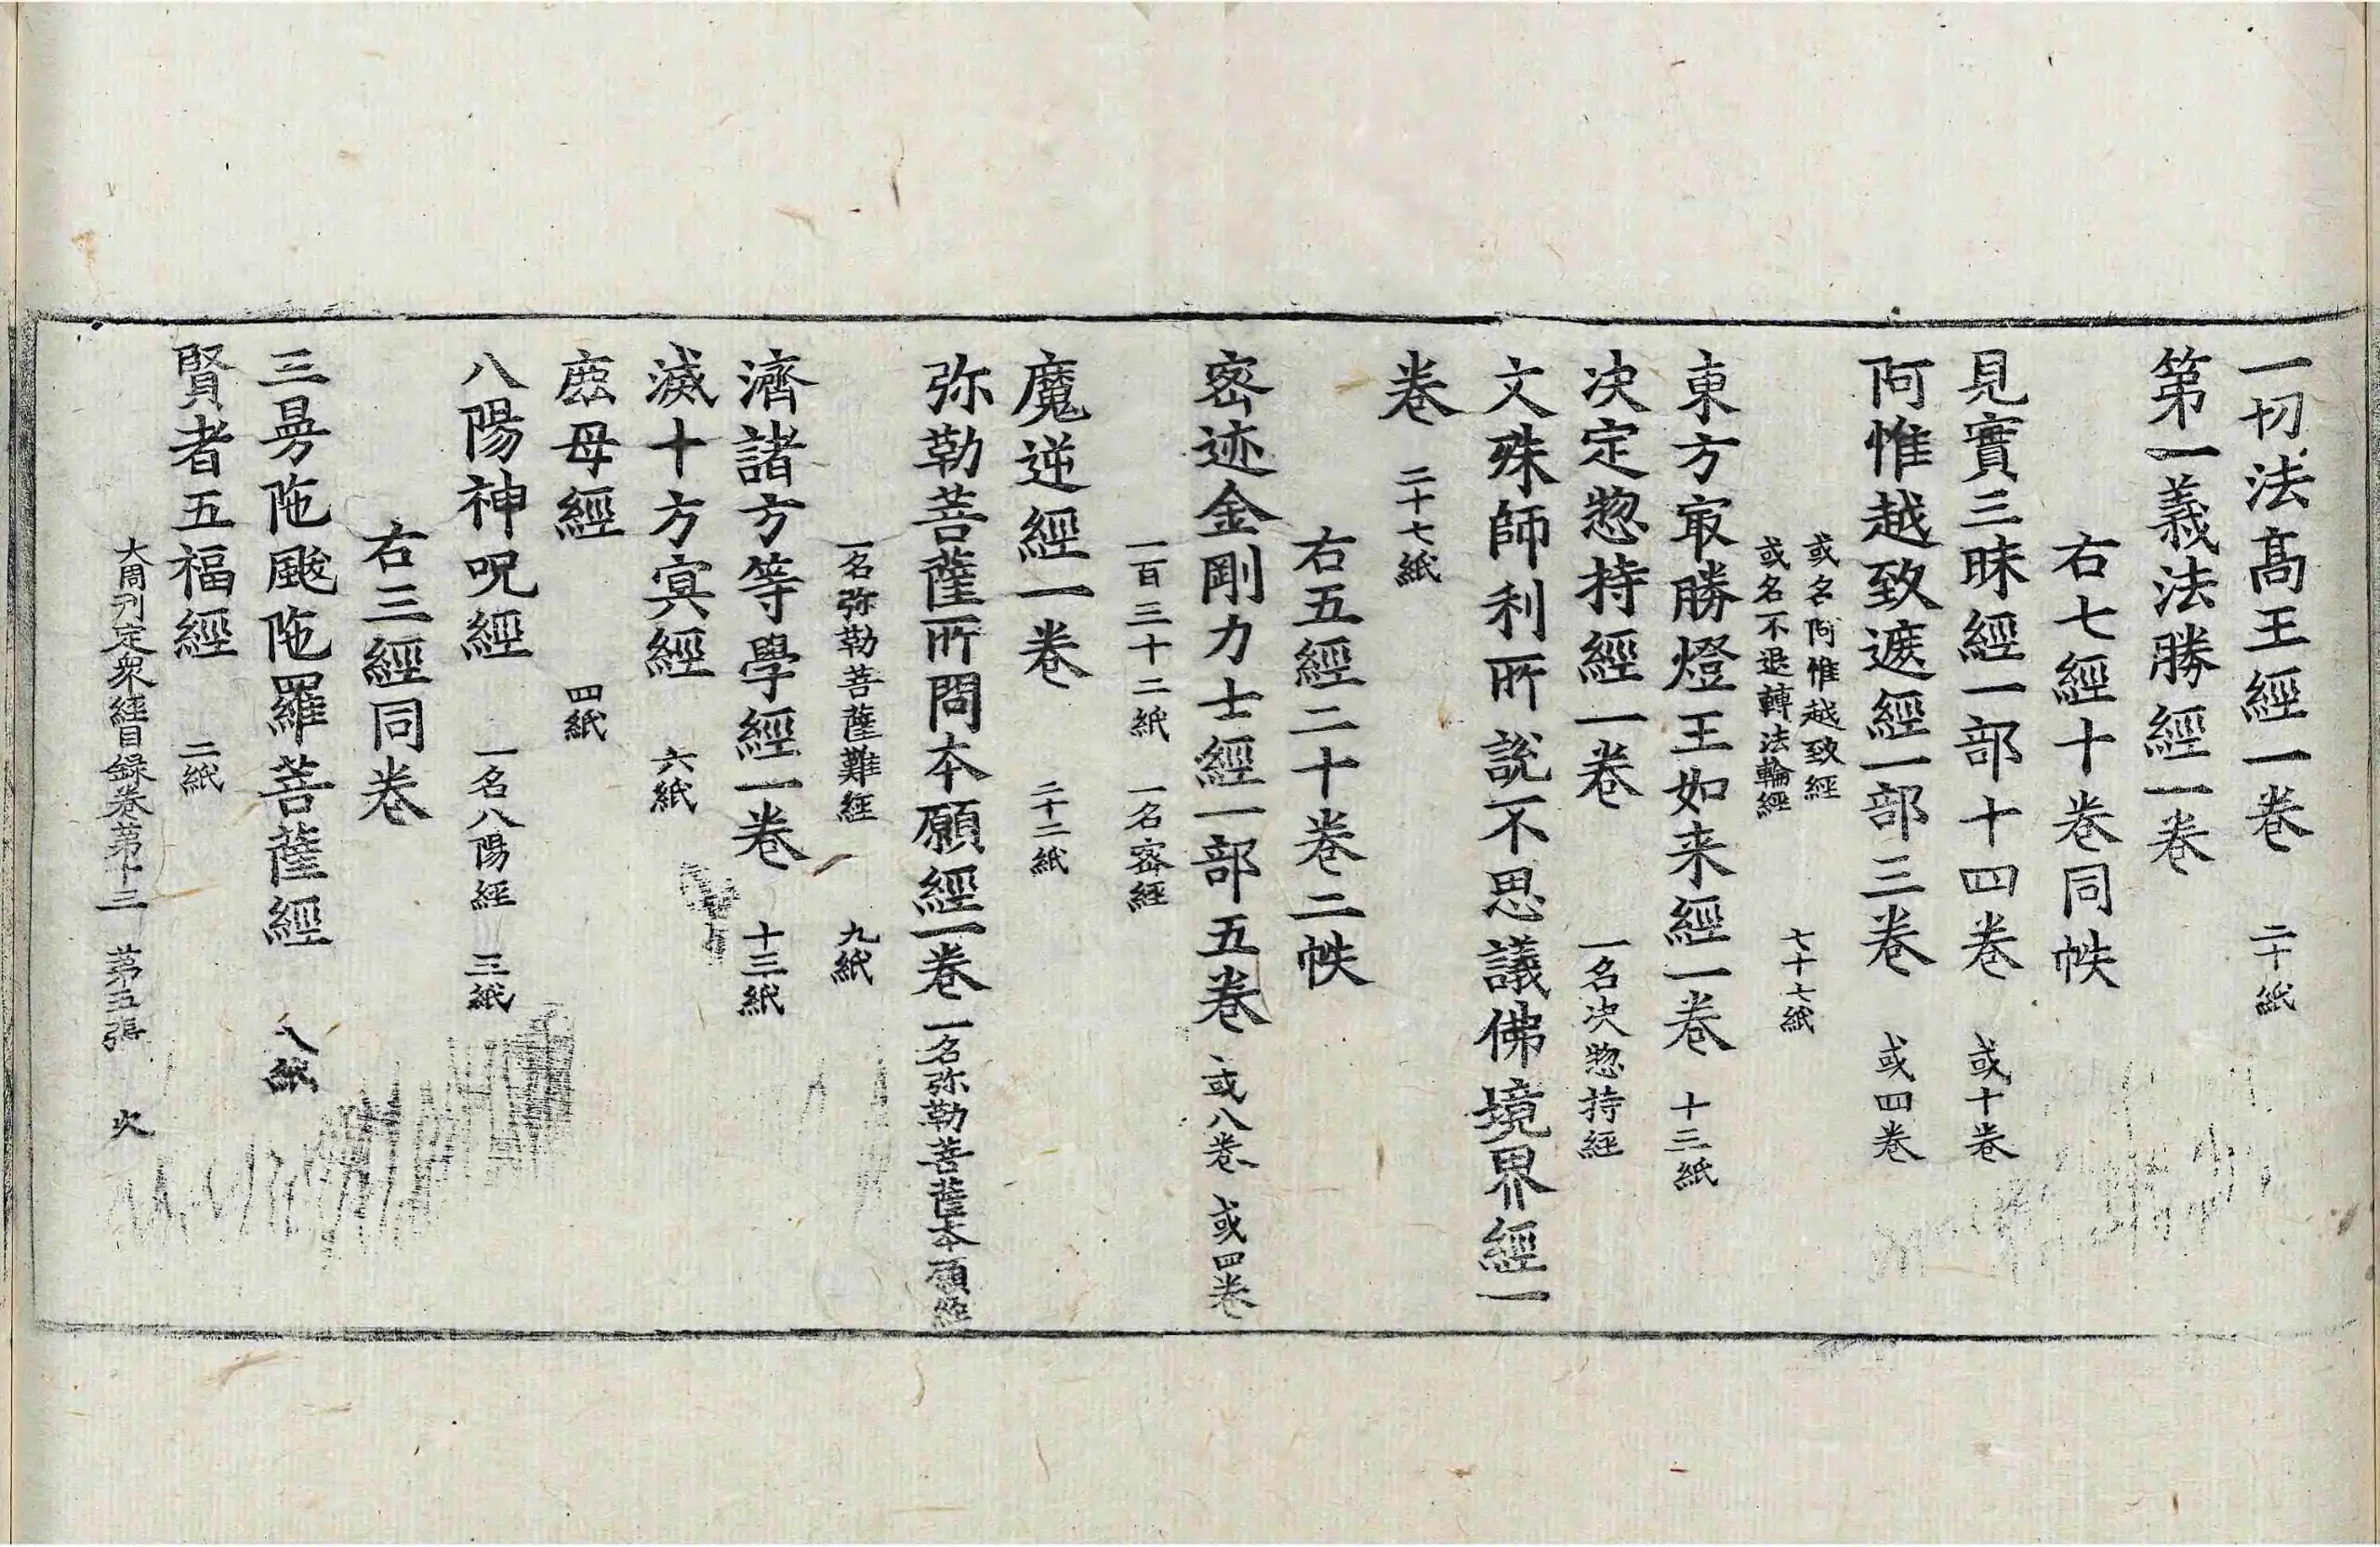 一切法髙王經一卷 二十紙
第一義法勝經一卷
右七經十卷同帙
見實三昧經一部十四卷 或十卷
阿惟越致遮經一部三卷 或四卷
或名阿惟越致經
或名不退轉法輪經
七十七紙
東方㝡勝燈王如来經一卷 十三紙
決定惣持經一卷 一名決惣持經
文殊師利所說不思議佛境界經一
卷 二十七紙
右五經二十卷二帙
密迹金剛力士經一部五卷 或八卷 或四卷
一百三十二紙 一名密經
魔逆經一卷 二十二紙
弥勒菩薩所問本願經一卷 一名弥勒菩薩本願經
一名弥勒菩薩難經 九紙
濟諸方等學經一卷 十三紙
滅十方㝠經 六紙
鹿母經 四紙
八陽神呪經 一名八陽經 三紙
右三經同卷
三曼陁颰陁羅菩薩經 八紙
賢者五福經 二紙
大周刊定衆經目録卷苐十三 苐五張